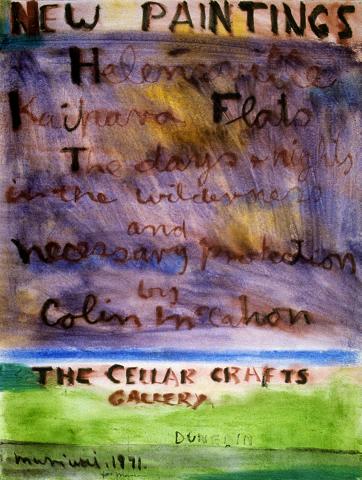 NEW PAINTINGS
Helensville
Kaipara Flats
The days & nights
in the wilderness
and
necessary protection
by
Colin McCahon
THE CELLAR CRAFTS
GALLERY
DUNEDIN
muriwai, 1971.